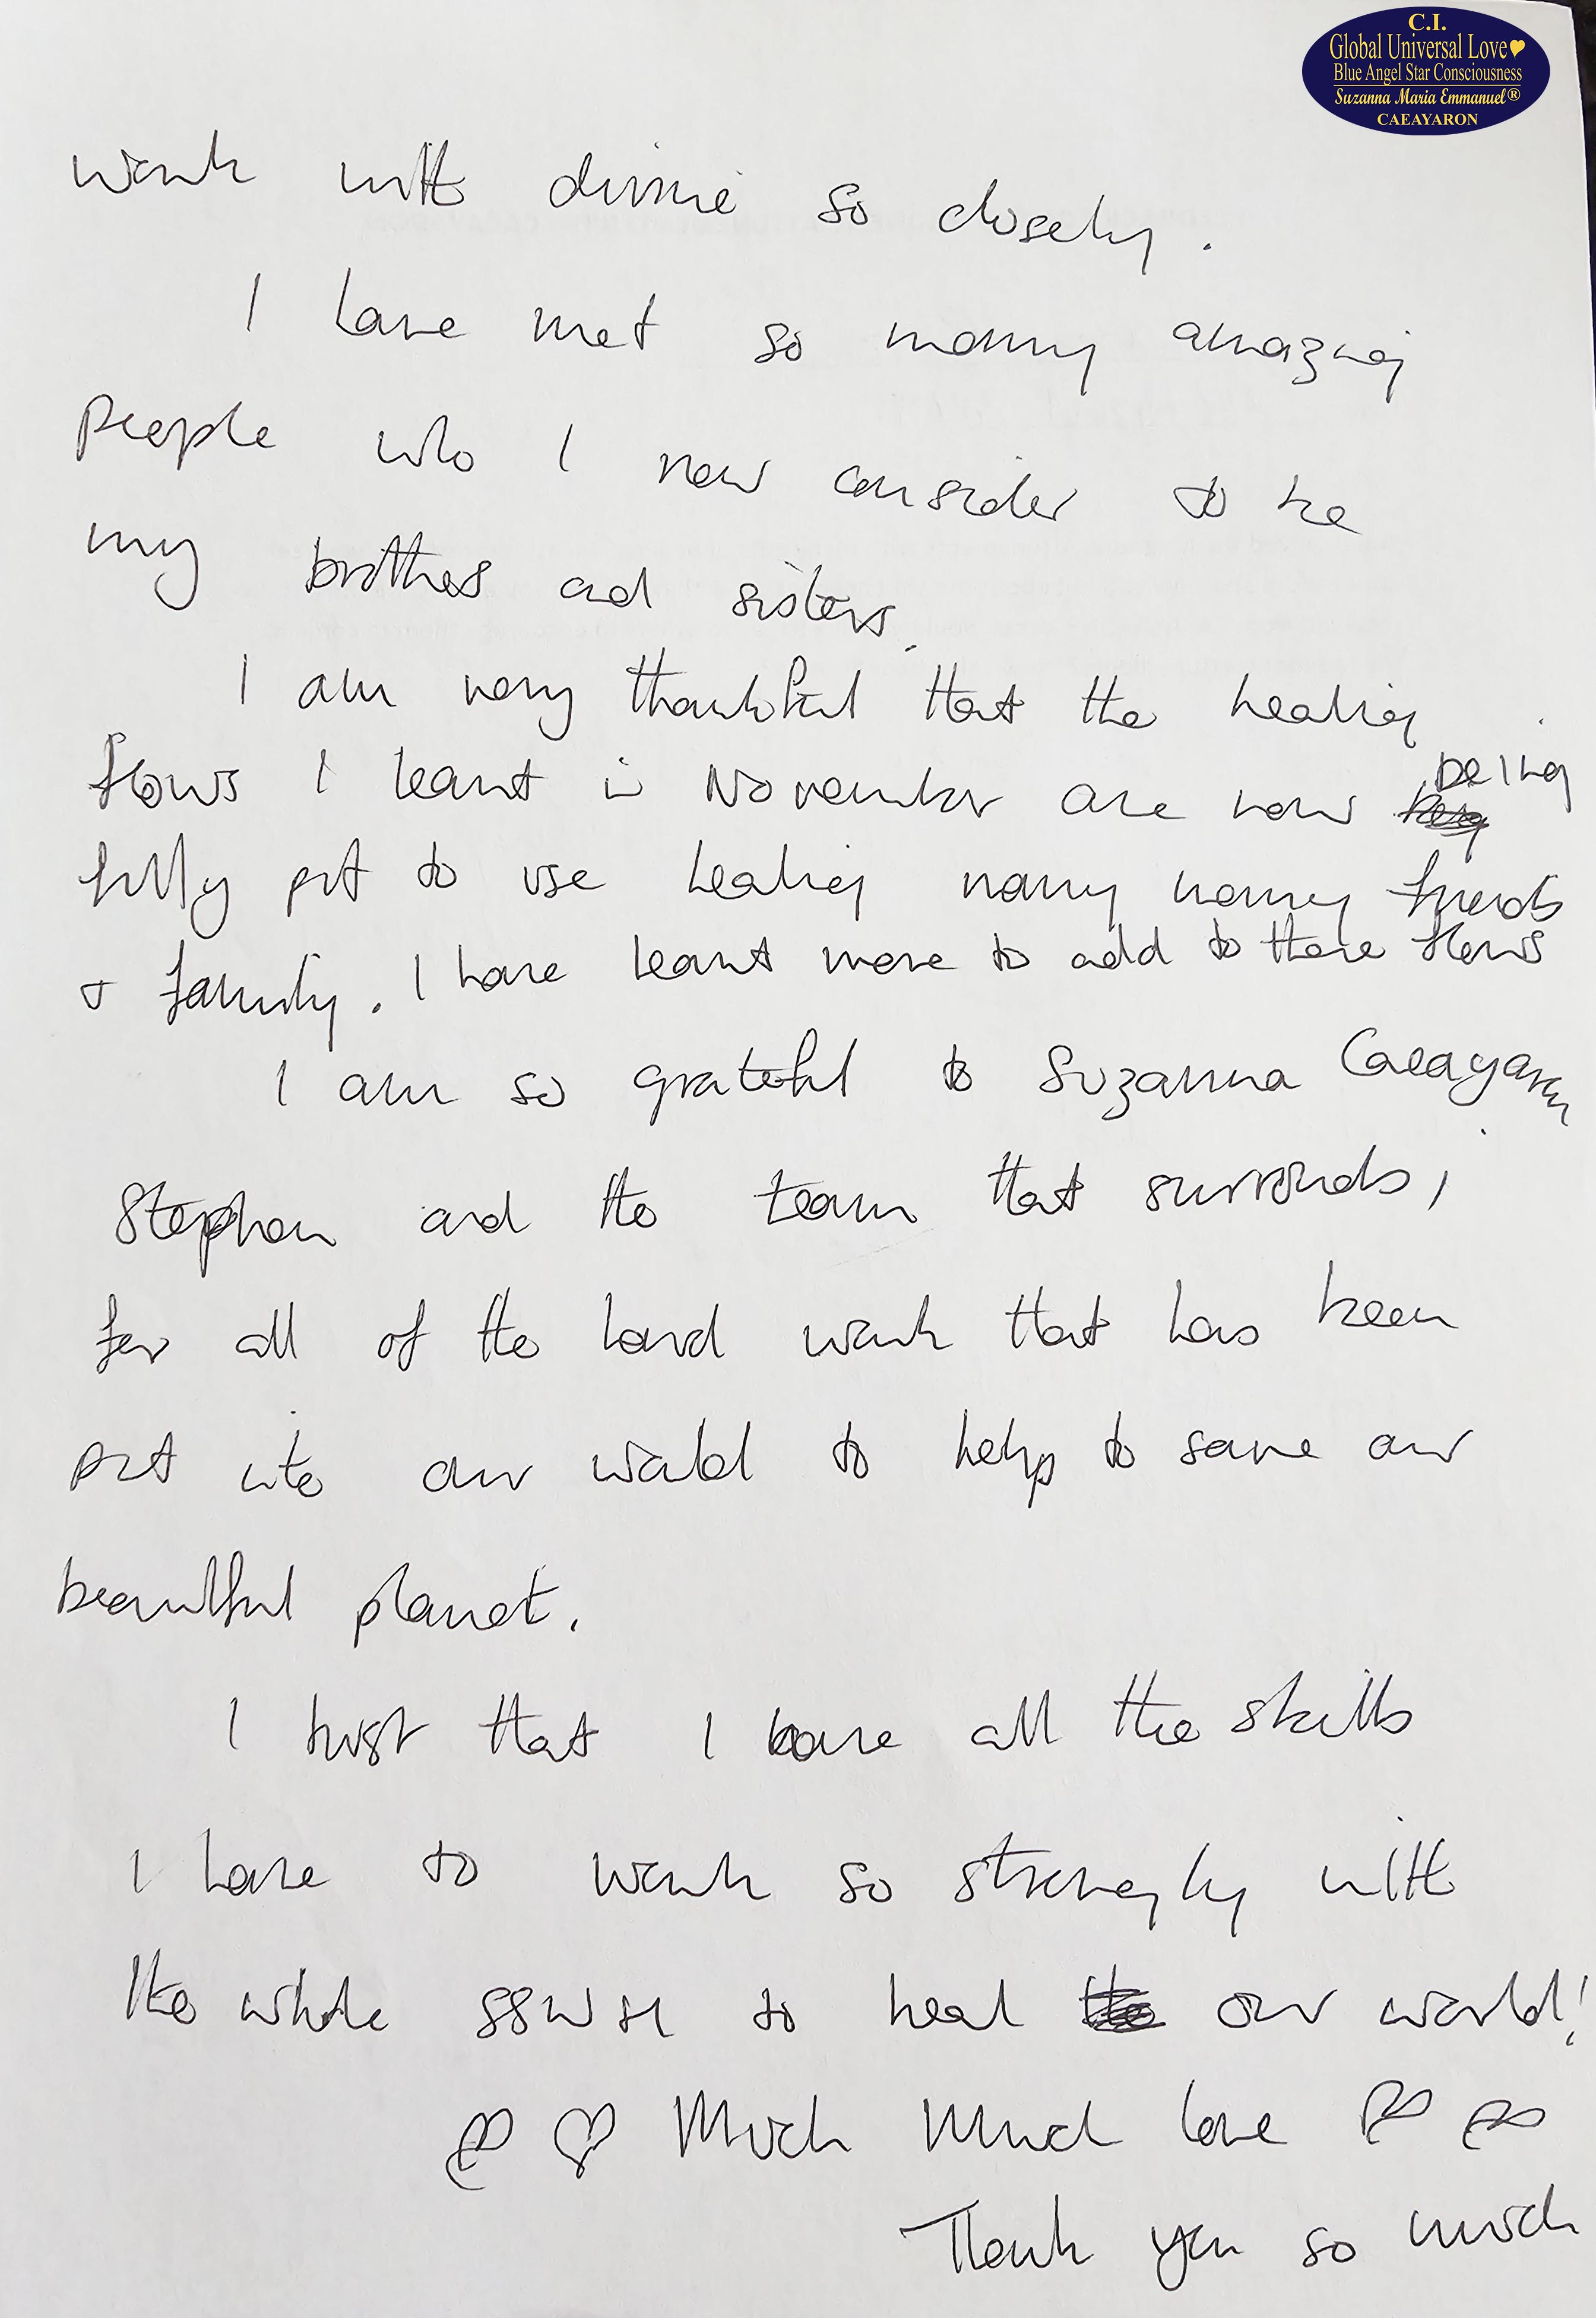 C.I.
Global Universal Love
Blue Angel Star Consciousness
Suzanna Maria Emmanuel®
CAEAYARON
work with divine so closely.
I have met so many amazing
people who I now consider to be
my brothers and sisters.
I am very thankful that the healing
flows I learnt in November are now being
fully put to use healing many many friends
& family. I have learnt more to add to these flows
I am so grateful to Suzanna Caeayaron
Stephan and the team that surrounds,
for all of the hard work that has been
put into our world to help to save our
beautiful planet.
I trust that I have all the skills
I have to work so strongly with
the whole to heal our world!
Much Much love
Thank you so much